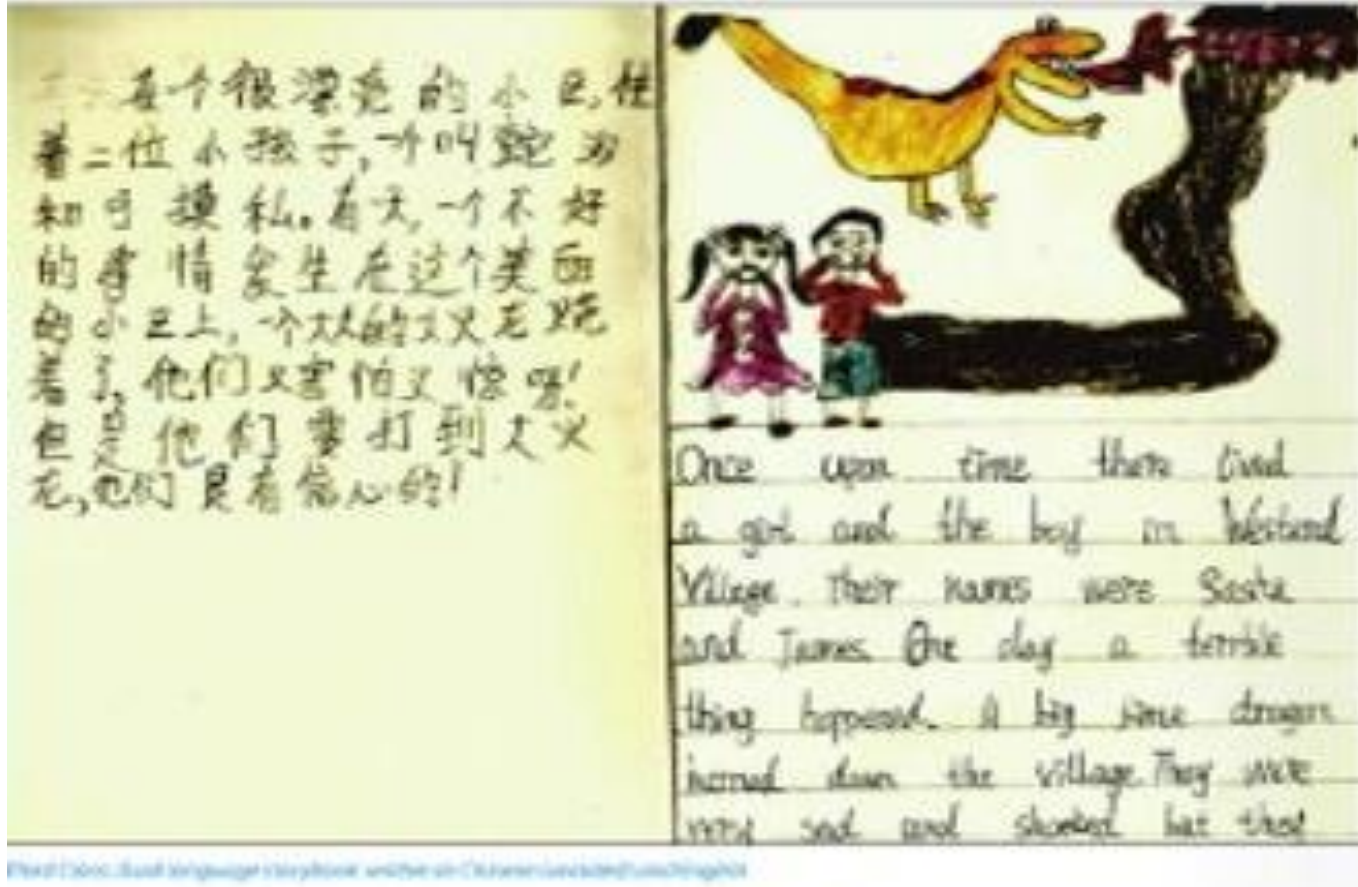 在个很漂亮的小巴,住
着二位小孩子,一个叫
和可摸私。有天,一个不好
的事情发生在这个美
的小巴上,一个大大的
着了,他们又害怕又惊呀!
但是他们要打到大火
龙,他们是有信心的!
Once upon time there lived
a girl and the boy in Westend
Village. Their names were Sasha
and James. One day a terrible
thing happened. A big dragon
down the village. They were
very sad and shocked but they